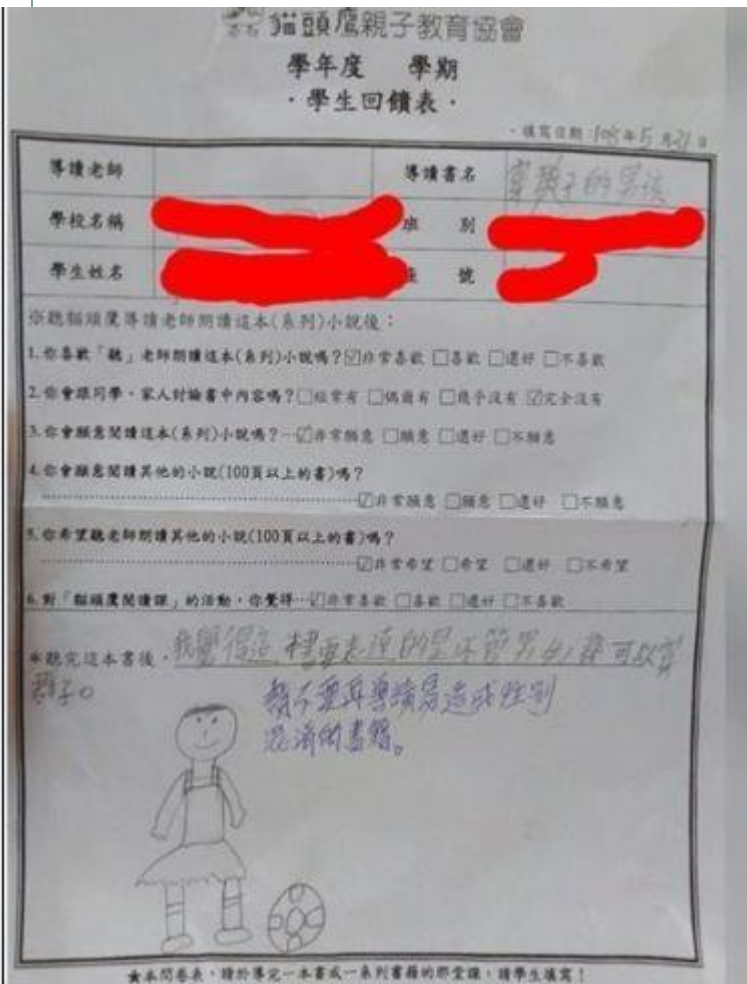 貓頭鷹親子教育協會
學年度 學期
·學生回饋表·
·填寫日期 108年5月21日
導讀老師 導讀書名 穿裙子的男孩
學校名稱 班 別
學生姓名 座 號
※聽貓頭鷹導讀老師朗讀這本(系列)小說後：
1.你喜歡「聽」老師朗讀這本(系列)小說嗎？☑非常喜歡 □喜歡 □還好 □不喜歡
2.你會跟同學、家人討論書中內容嗎？□經常有 □偶爾有 □幾乎沒有 ☑完全沒有
3.你會願意閱讀這本(系列)小說嗎？…☑非常願意 □願意 □還好 □不願意
4.你會願意閱讀其他的小說(100頁以上的書)嗎？
☑非常願意 □願意 □還好 □不願意
5.你希望聽老師朗讀其他的小說(100頁以上的書)嗎？
☑非常希望 □希望 □還好 □不希望
6.對「貓頭鷹閱讀課」的活動，你覺得…☑非常喜歡 □喜歡 □還好 □不喜歡
*聽完這本書後，我覺得這裡要表達的是不管男女都可以穿
裙子。
請不要再導讀易造成性別
混淆的書籍。
★本問卷表，請於導完一本書或一系列書籍的那堂課，請學生填寫！